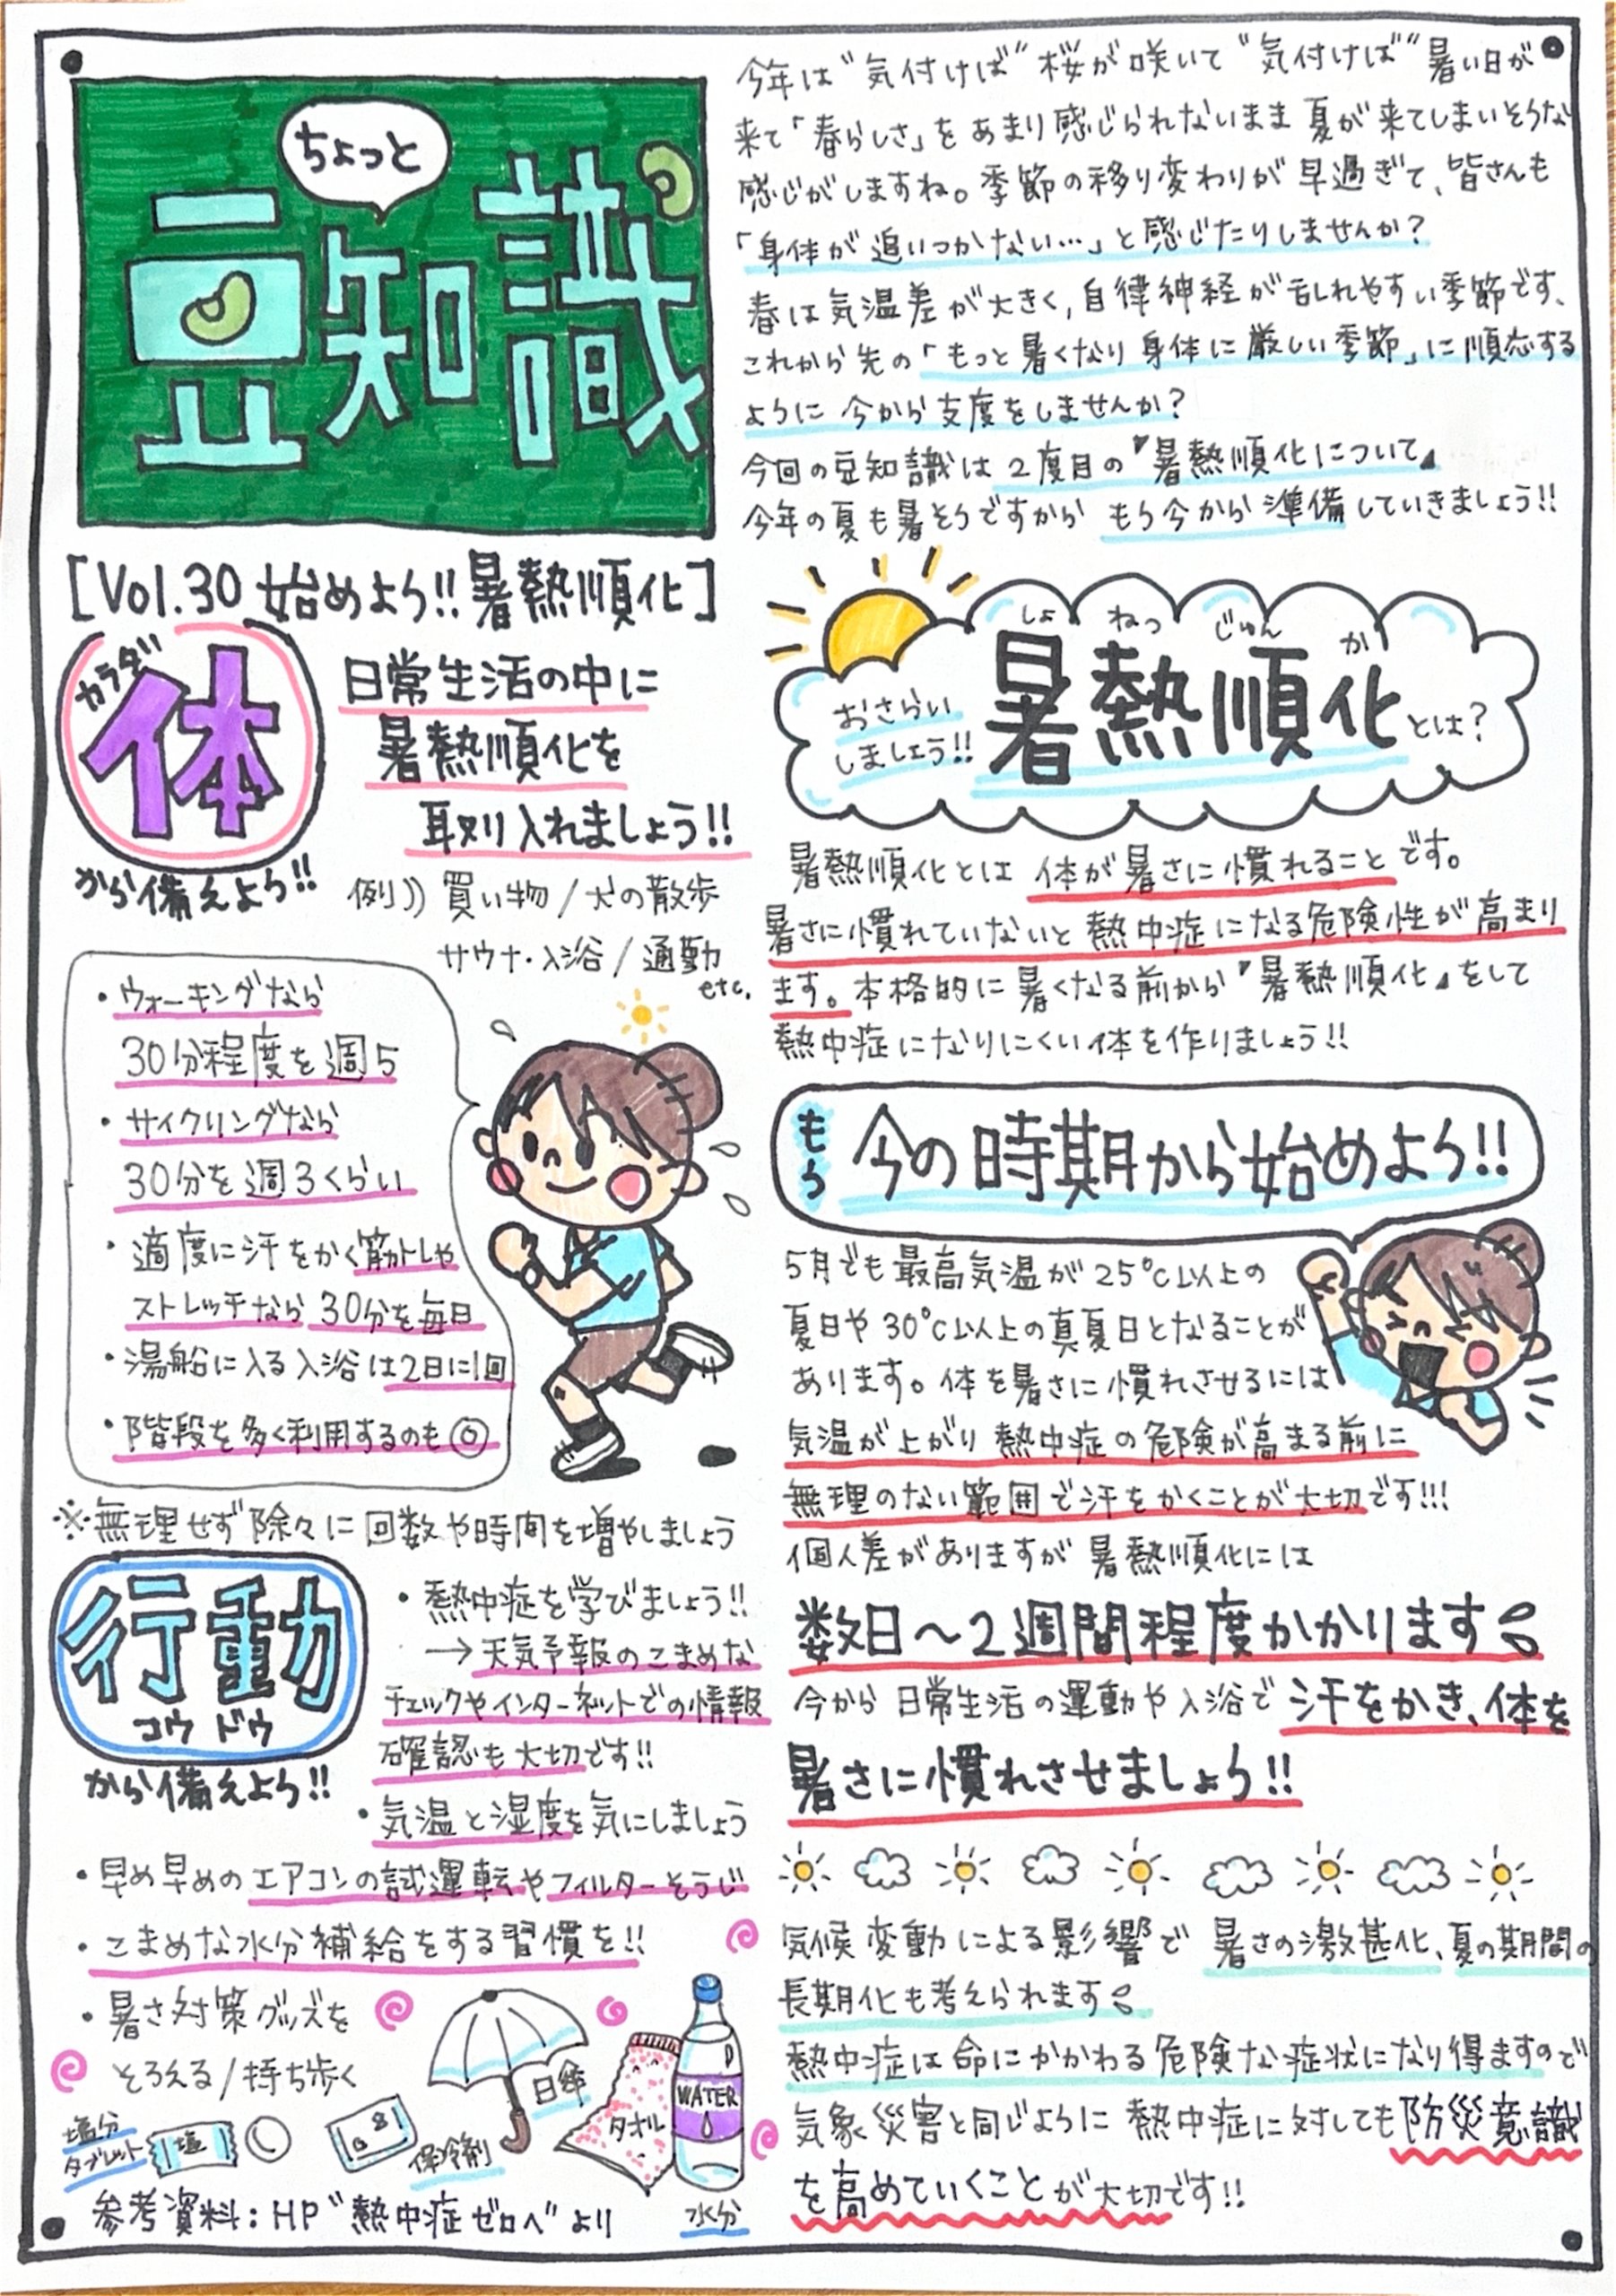 ちょっと
豆知識
今年は"気付けば"桜が咲いて"気付けば"暑い日が
来て「春らしさ」をあまり感じられないまま夏が来てしまいそうな
感じがしますね。季節の移り変わりが早過ぎて、皆さんも
「身体が追いつかない…」と感じたりしませんか?
春は気温差が大きく,自律神経が乱れやすい季節です、
これから先の「もっと暑くなり身体に厳しい季節」に順応する
ように今から支度をしませんか?
今回の豆知識は2度目の『暑熱順化について』
今年の夏も暑そうですからもう今から準備していきましょう!!
[Vol.30 始めよう!!暑熱順化]
カラダ
体
から備えよう!!
日常生活の中に
暑熱順化を
取り入れましょう!!
例))買い物/犬の散歩
サウナ・入浴/通勤
etc.
・ウォーキングなら
30分程度を週5
・サイクリングなら
30分を週3くらい
・適度に汗をかく筋トレや
ストレッチなら30分を毎日
・湯船に入る入浴は2日に1回
・階段を多く利用するのも◎
※無理せず除々に回数や時間を増やしましょう
行動
コウドウ
から備えよう!!
・熱中症を学びましょう!!
→天気予報のこまめな
チェックやインターネットでの情報
確認も大切です!!
・気温と湿度を気にしましょう
・早め早めのエアコンの試運転やフィルターそうじ
・こまめな水分補給をする習慣を!!
・暑さ対策グッズを
そろえる/持ち歩く
塩分
タブレット
塩
保冷剤
日傘
タオル
WATER
水分
参考資料:HP"熱中症ゼロへ"より
しょ ねつ じゅん か
おさらい
しましょう!!
暑熱順化とは?
暑熱順化とは体が暑さに慣れることです。
暑さに慣れていないと熱中症になる危険性が高まり
ます。本格的に暑くなる前から『暑熱順化』をして
熱中症になりにくい体を作りましょう!!
もう今の時期から始めよう!!
5月でも最高気温が25℃以上の
夏日や30℃以上の真夏日となることが
あります。体を暑さに慣れさせるには
気温が上がり熱中症の危険が高まる前に
無理のない範囲で汗をかくことが大切です!!!
個人差がありますが暑熱順化には
数日~2週間程度かかります
今から日常生活の運動や入浴で汗をかき、体を
暑さに慣れさせましょう!!
気候変動による影響で暑さの激甚化、夏の期間の
長期化も考えられます
熱中症は命にかかわる危険な症状になり得ますので
気象災害と同じように熱中症に対しても防災意識
を高めていくことが大切です!!